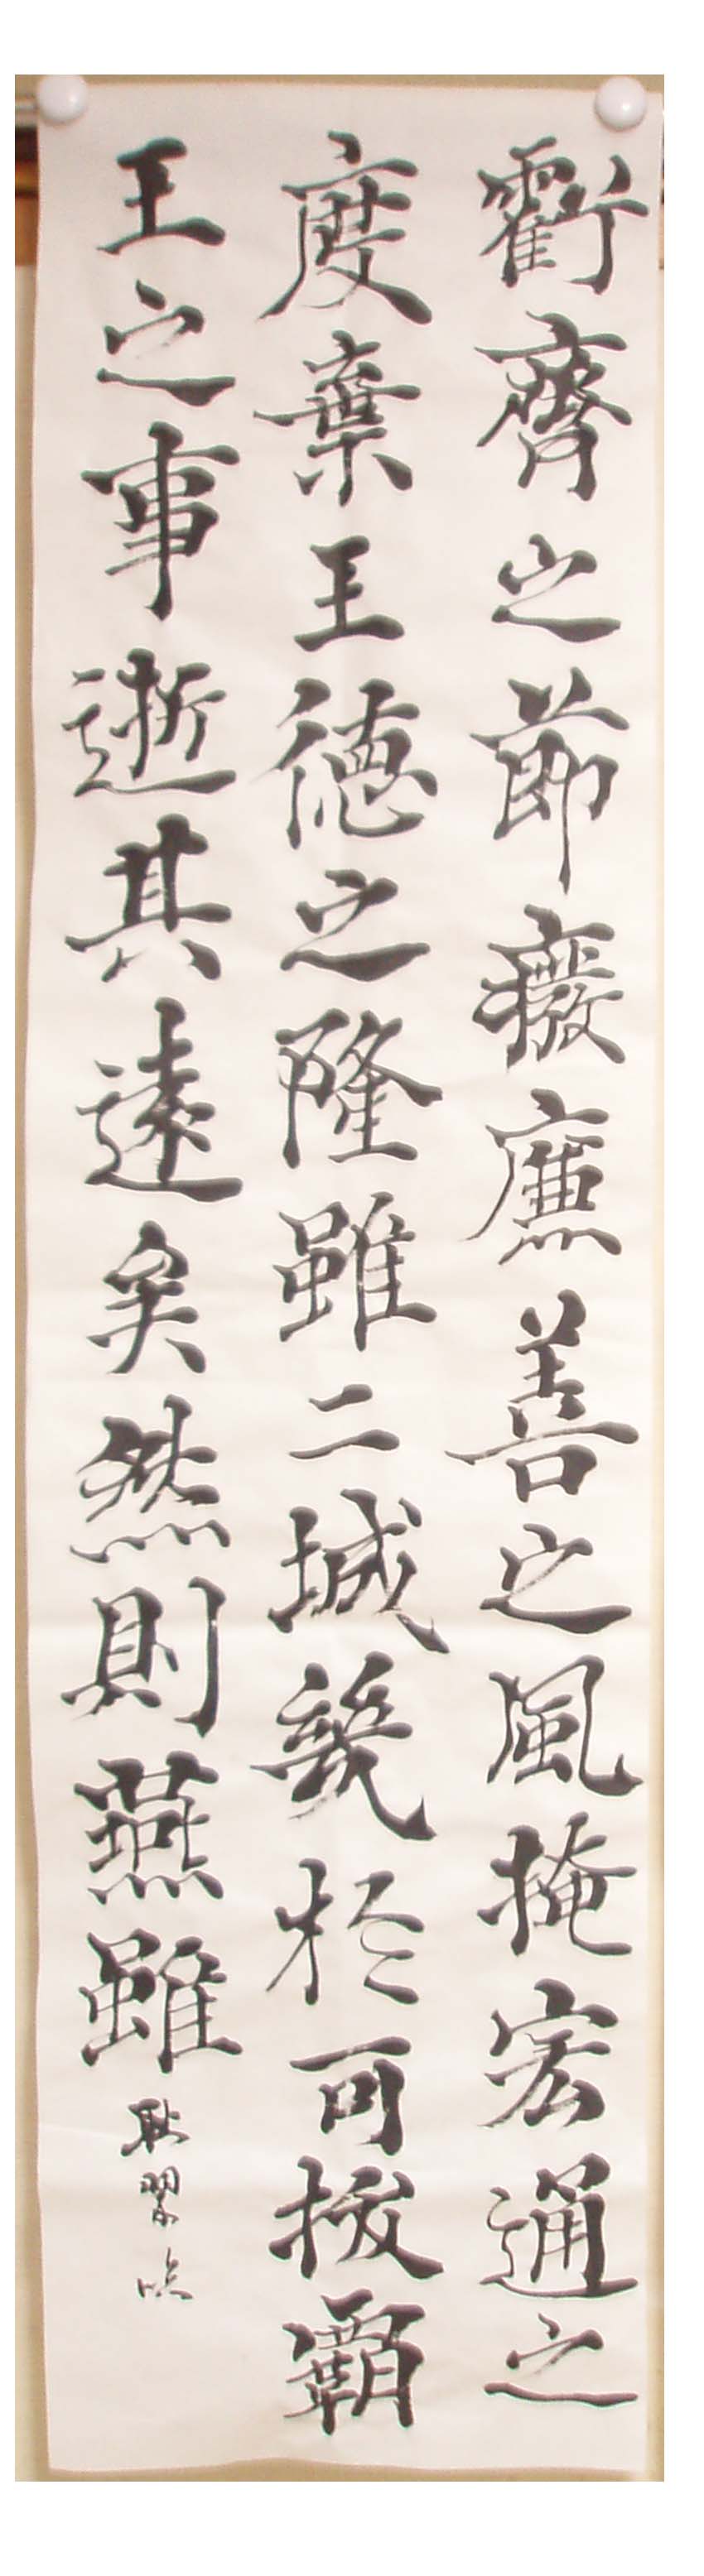 虧齊之節廢廉善之風掩宏通之
度棄王德之隆雖二城幾於可拔霸
王之事逝其遠矣然則燕雖
耿翠臨